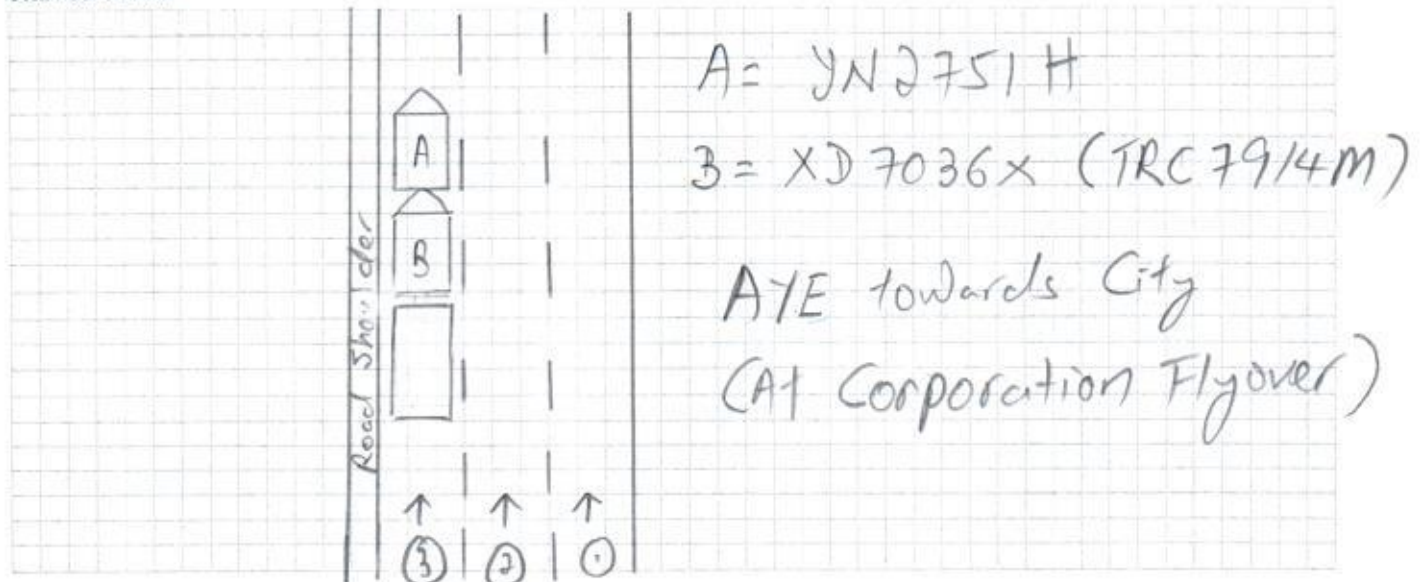 A
B
Road Shoulder
3
2
1
A= YN2751H
B= XD7036X (TRC7914M)
AYE towards City
(At Corporation Flyover)